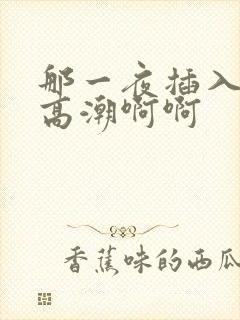 那一夜插入
高潮啊啊
香蕉味的西瓜